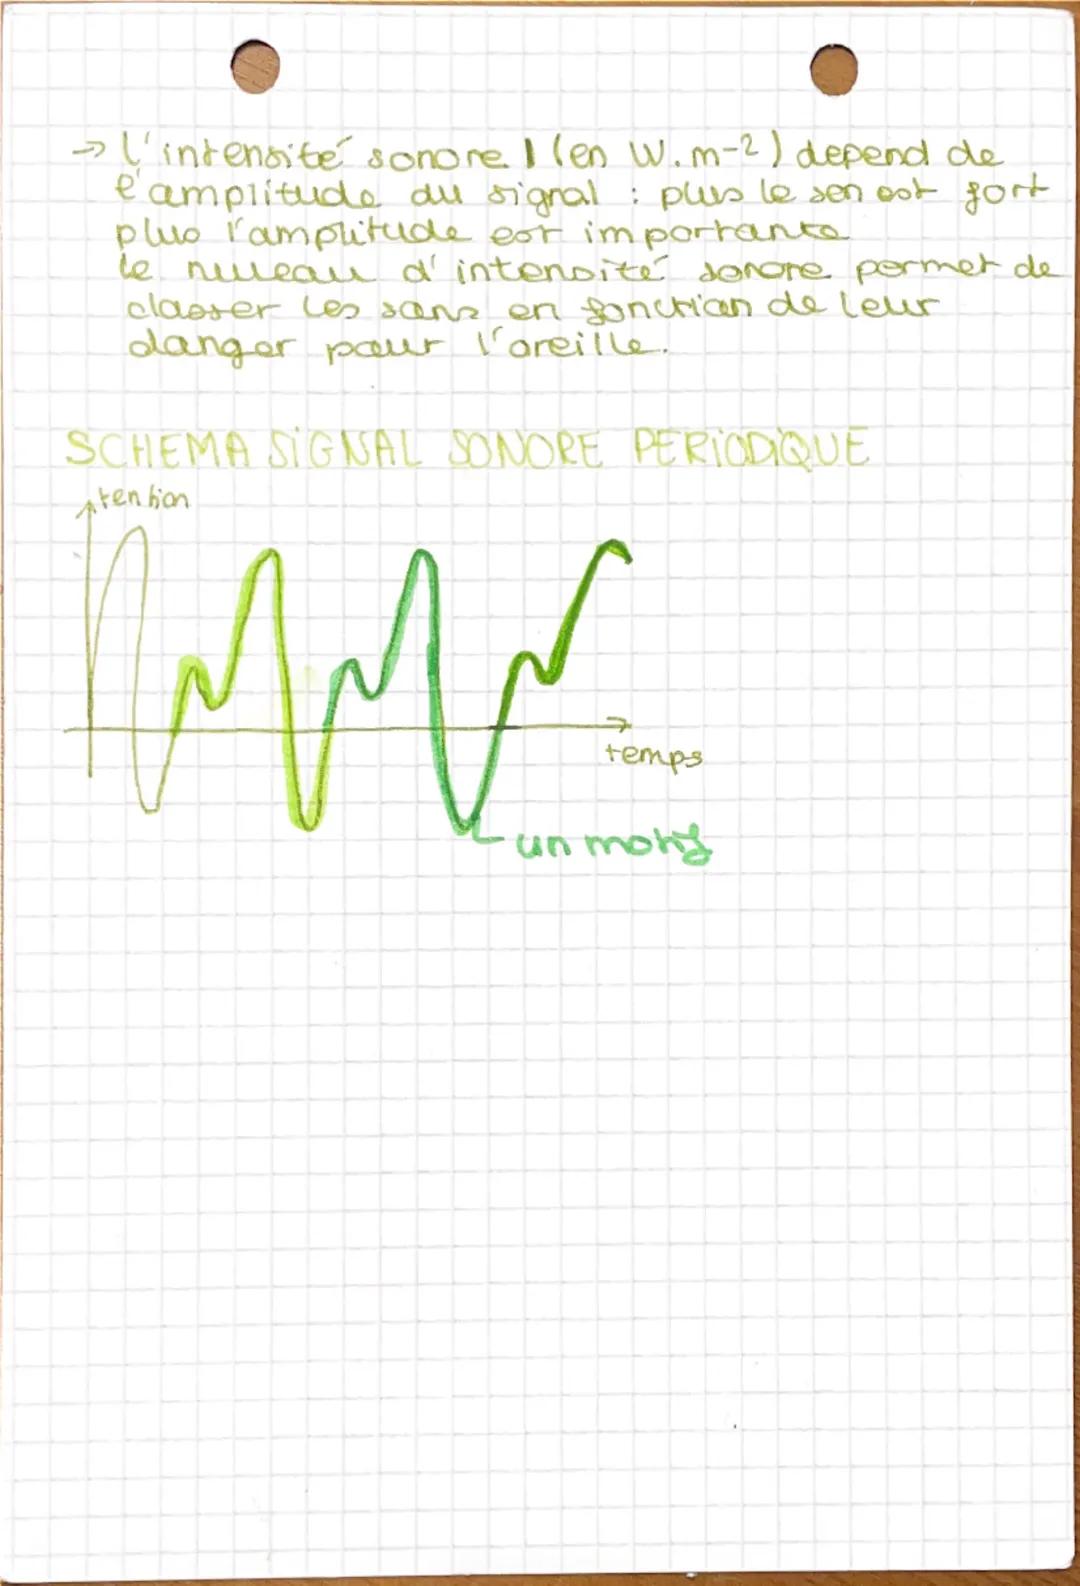 → l'intensité sonore I (en W.m-2) depend de
l'amplitude du signal : plus le son est fort
plus l'amplitude est importante
le niveau d'intensité sonore permet de
classer les sons en fonction de leur
danger pour l'oreille.
SCHEMA SIGNAL SONORE PERIODIQUE
tension
temps
un motif